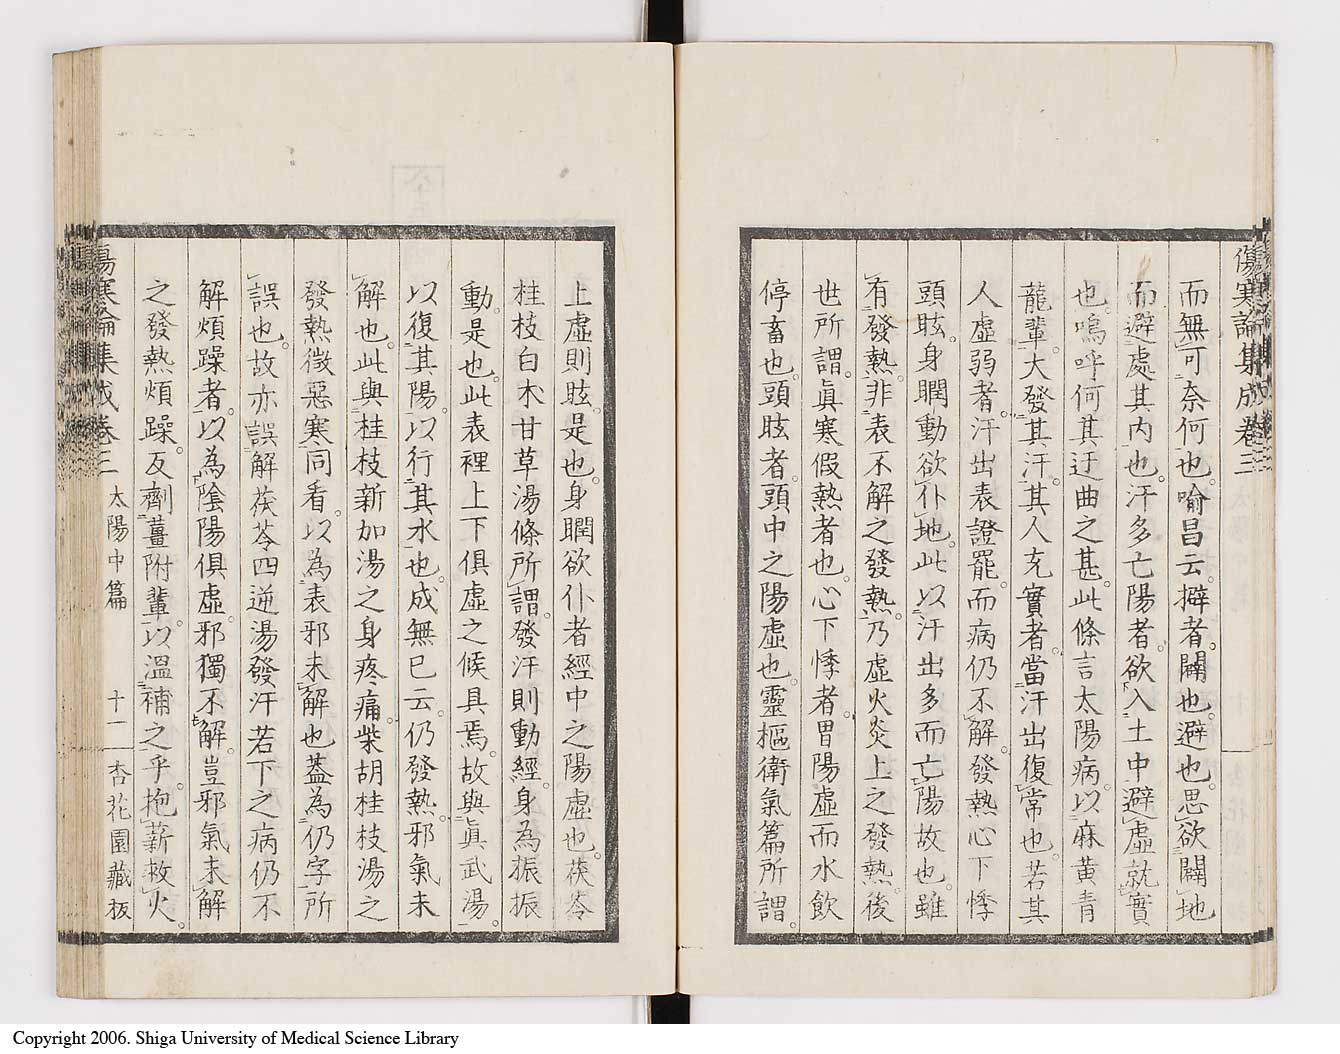 傷寒論集成卷三
而無可奈何也。喻昌云。擗者。闢也。避也。思欲闢地
而避處其内也。汗多亡陽者。欲入土中避虛就實
也。嗚呼何其迂曲之甚。此條言太陽病。以麻黃青
龍輩。大發其汗。其人充實者。當汗出復常也。若其
人虛弱者。汗出表證罷。而病仍不解。發熱心下悸
頭眩。身瞤動。欲仆地。此以汗出多而亡陽故也。雖
有發熱。非表不解之發熱。乃虛火炎上之發熱。後
世所謂。眞寒假熱者也。心下悸者。胃陽虛而水飲
停畜也。頭眩者。頭中之陽虛也。靈樞衛氣篇所謂。
上虛則眩。是也。身瞤欲仆者。經中之陽虛也。茯苓
桂枝白朮甘草湯條所謂。發汗則動經。身為振振
動。是也。此表裡上下俱虛之候具焉。故與眞武湯。
以復其陽。以行其水也。成無已云。仍發熱。邪氣未
解也。此與桂枝新加湯之身疼痛。柴胡桂枝湯之
發熱微惡寒。同看。以為表邪未解也。蓋為仍字所
誤也。故亦誤解茯苓四逆湯發汗若下之病仍不
解煩躁者。以為陰陽俱虛。邪獨不解。豈邪氣未解
之發熱煩躁。反劑薑附輩。以溫補之乎。抱薪救火。
傷寒論集成卷三 太陽中篇 十一 杏花園藏板
Copyright 2006. Shiga University of Medical Science Library